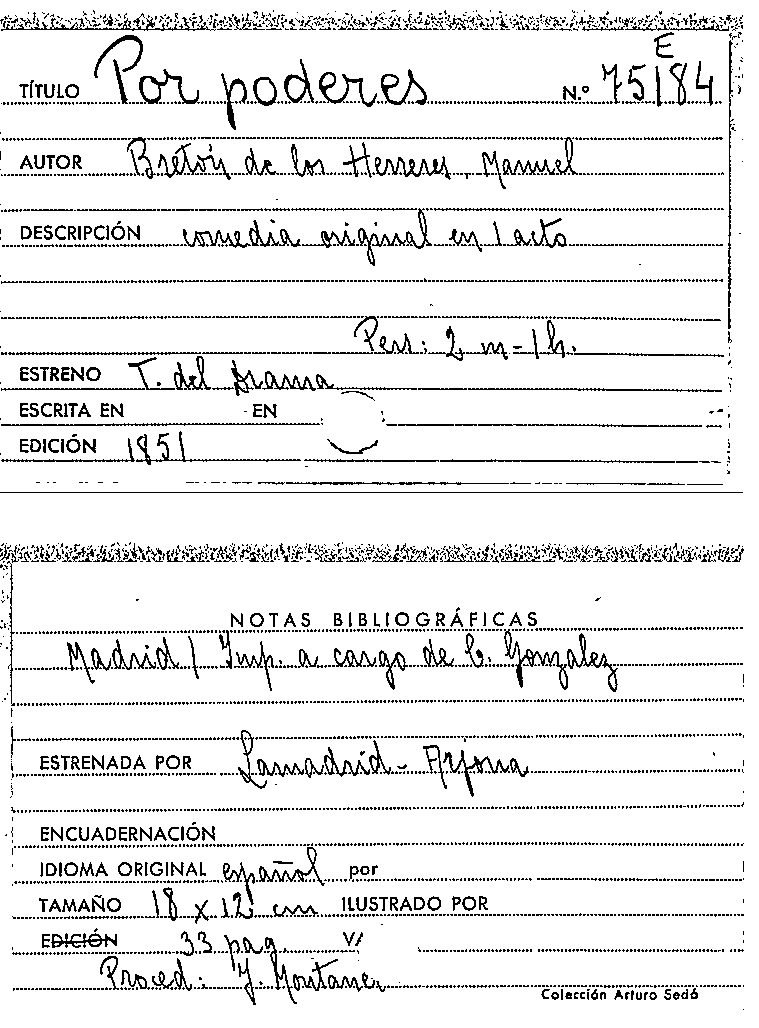 E
TÍTULO Por poderes N.º 75184
AUTOR Bretón de los Herreros, Manuel
DESCRIPCIÓN comedia original en 1 acto
Pers: 2 m - 1 h.
ESTRENO T. del Drama
ESCRITA EN EN
EDICIÓN 1851
NOTAS BIBLIOGRÁFICAS
Madrid / Imp. a cargo de C. Gonzalez
ESTRENADA POR Lamadrid - Arjona
ENCUADERNACIÓN
IDIOMA ORIGINAL español por
TAMAÑO 18 x 12 cm ILUSTRADO POR
EDICIÓN 33 pag. V/
Proced: J. Montaner
Colección Arturo Sedó